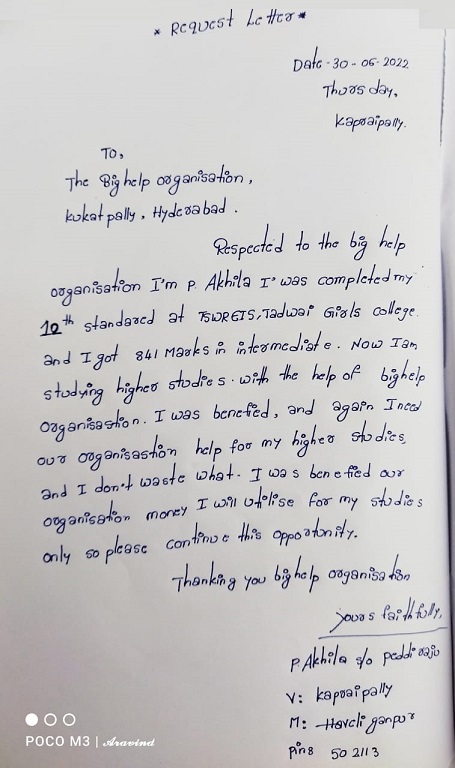 * Request Letter *
Date - 30 - 06 - 2022
Thursday,
Kapraipally.
To,
The Big help organisation,
kukatpally, Hyderabad.
Respected to the big help
organisation I'm P. Akhila I' was completed my
12th standared at TSWREIS, Tadwai Girls college.
and I got 841 Marks in intermediate. Now I am
studying higher studies. with the help of bighelp
Organisastion. I was benefied, and again I need
our organisastion help for my higher studies,
and I don't waste what. I was benefied our
organisation money I will utilise for my studies
only so please continue this opportunity.
Thanking you bighelp organisation
yours faithfully,
P. Akhila s/o peddiraju
V: kapraipally
M: Haveli ganpur
Pin: 502113
POCO M3 | Aravind